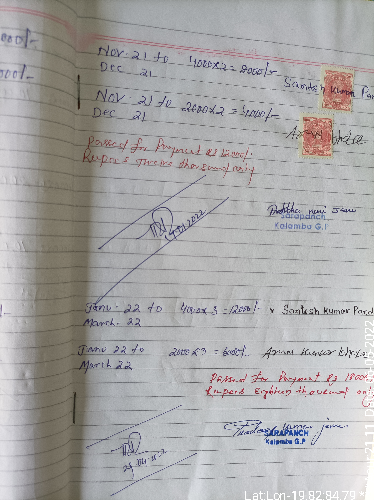 000/-
000/-
Nov-21 to 4000x2=8000/-
Dec 21
Santosh Kumar
Nov-21 to 2000x2=4000/-
Dec 21
Passed for Payment Rs 12000/-
Rupees Twelve thousand only
14.01.2022
SARAPANCH
Kalamba G.P
Janu-22 to 4000x3=12000/- Santosh Kumar
March-22
Janu 22 to 2000x3=6000/-
March 22
Passed for Payment Rs 18000
Rupees Eighteen thousand only
SARAPANCH
Kalamba G.P
Lat Lon-19.82,84.79